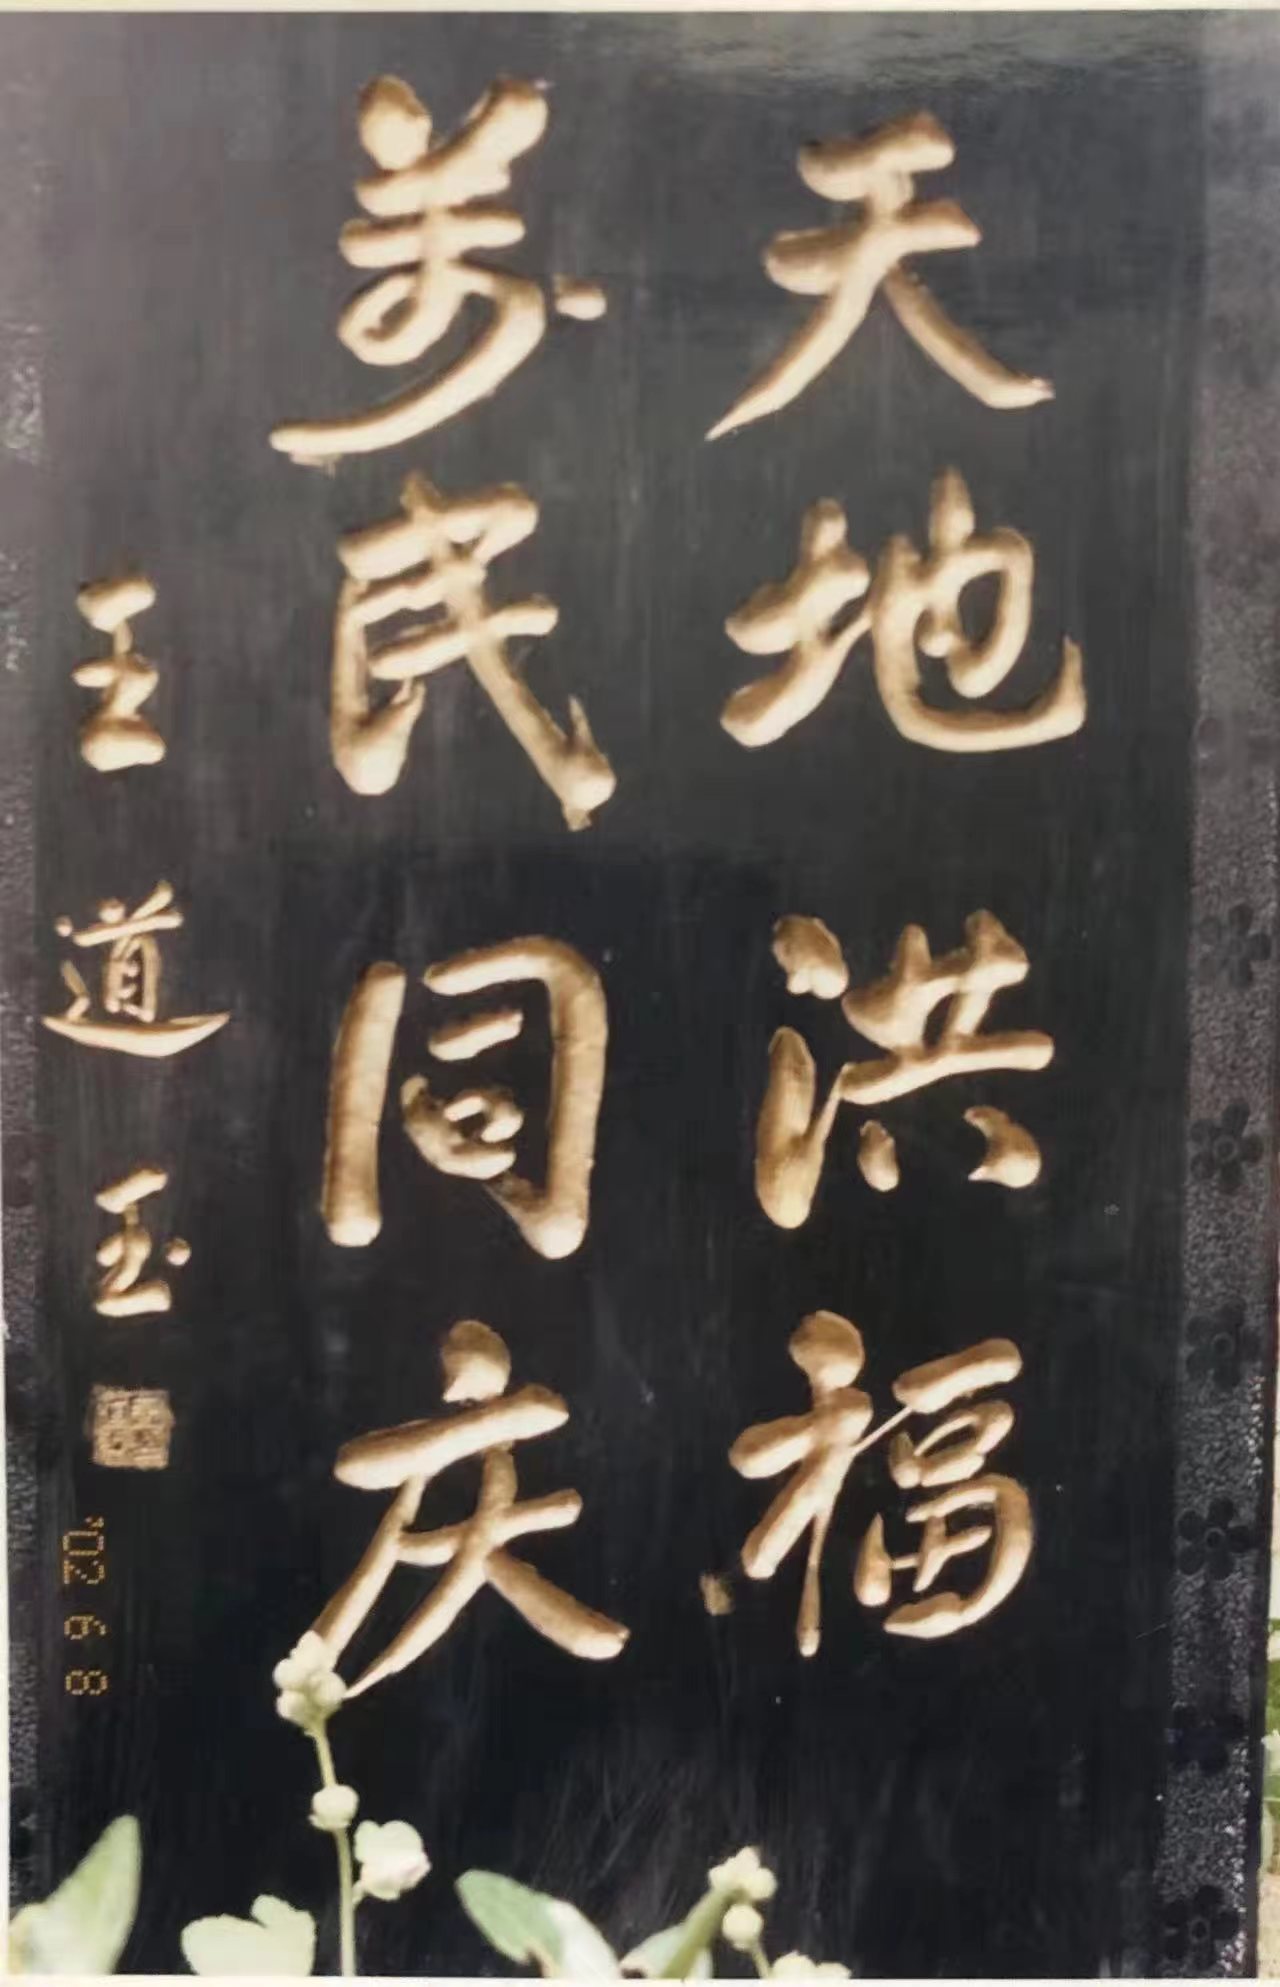 天地洪福
萬民同庆
王道玉
'02 6 8